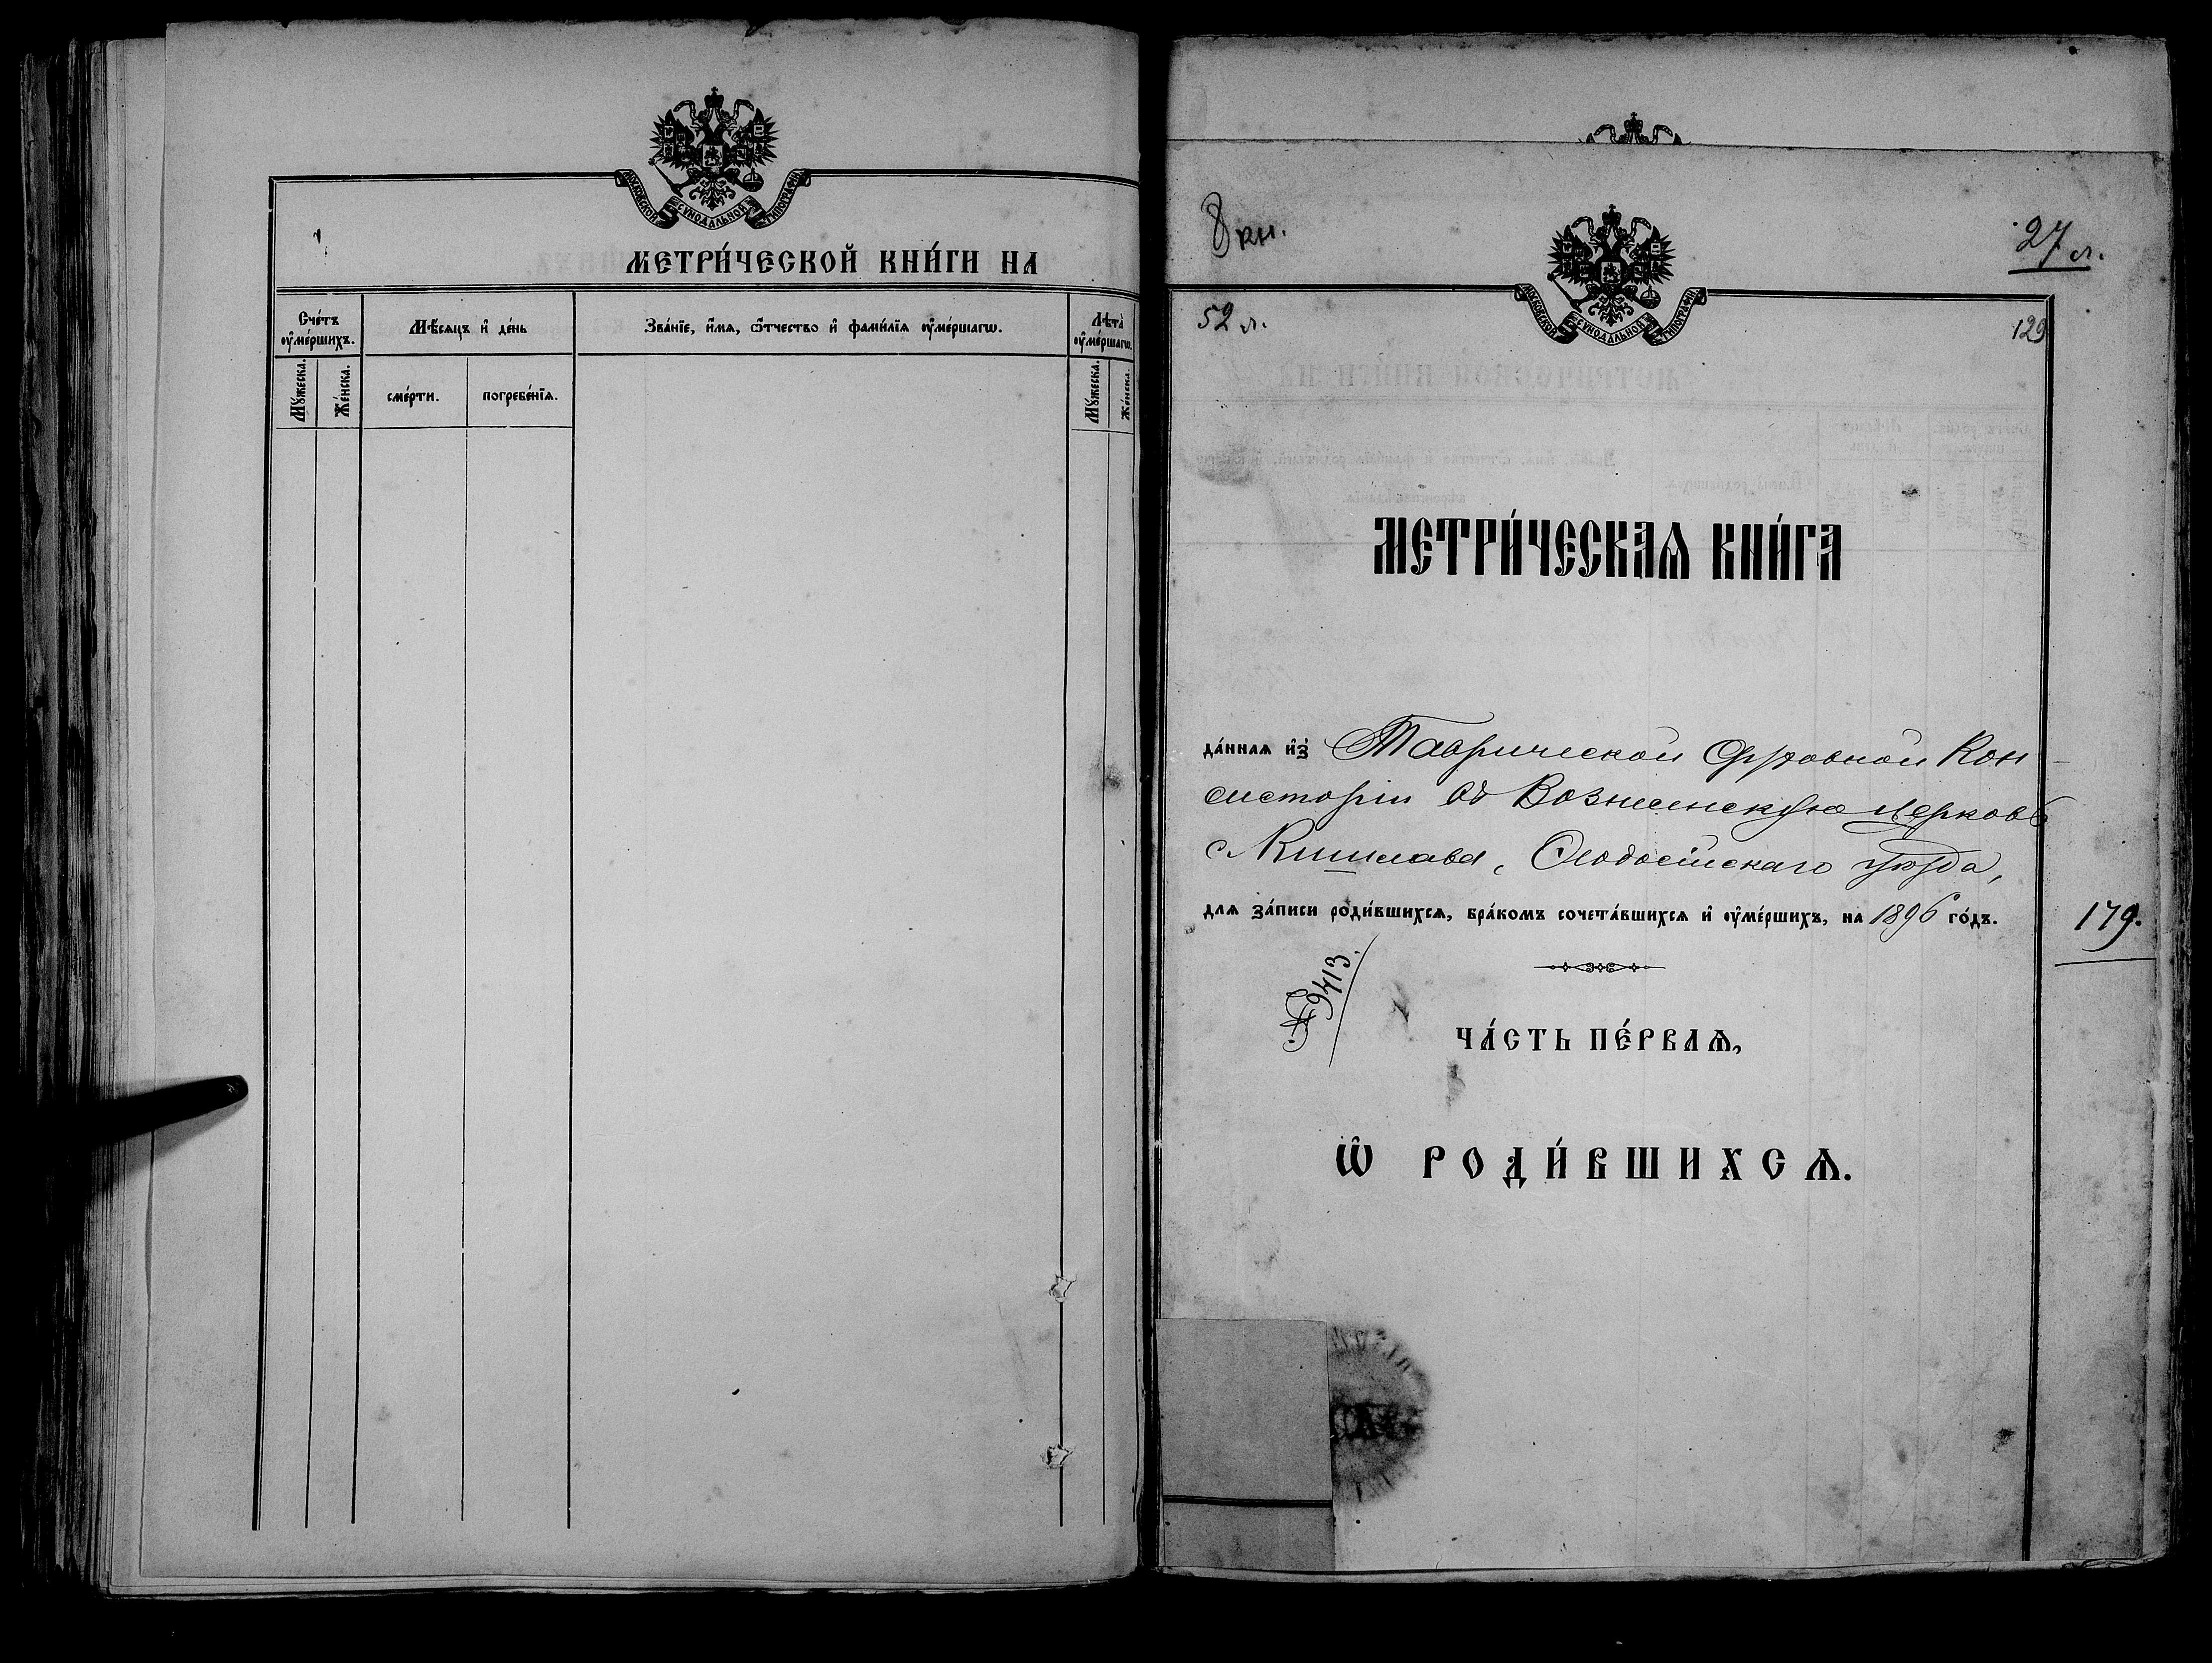 МОСКОВСКОЙ СѴНОДАЛЬНОЙ ТИПОГРАФІИ
МЕТРИ́ЧЕСКОЙ КНИ́ГИ НА
Сче́тъ ᲂу҆ме́ршихъ.
Мꙋ́жеска.
Же́нска.
Мѣ́сяцъ и҆ де́нь
сме́рти.
погребе́нїѧ.
Зва́нїе, и҆́мѧ, ѻ҆́тчество и҆ фами́лїѧ ᲂу҆ме́ршагѡ.
Лѣ́та ᲂу҆ме́ршагѡ.
Мꙋ́жеска.
Же́нска.
8 кн.
27 л.
МОСКОВСКОЙ СѴНОДАЛЬНОЙ ТИПОГРАФІИ
52 л.
129
МЕТРИ́ЧЕСКАѦ КНИ́ГА
да́ннаѧ и҆з̾ Таврической Духовной Кон
систоріи въ Вознесенскую церковь
с. Кишлава, Ѳеодосійскаго уѣзда,
длѧ за́писи роди́вшихсѧ, бра́комъ сочета́вшихсѧ и҆ ᲂу҆ме́ршихъ, на 1896 го́дъ.
179.
№ 9413.
ЧА́СТЬ ПЕ́РВАѦ,
Ѡ҆ РОДИ́ВШИХСѦ.